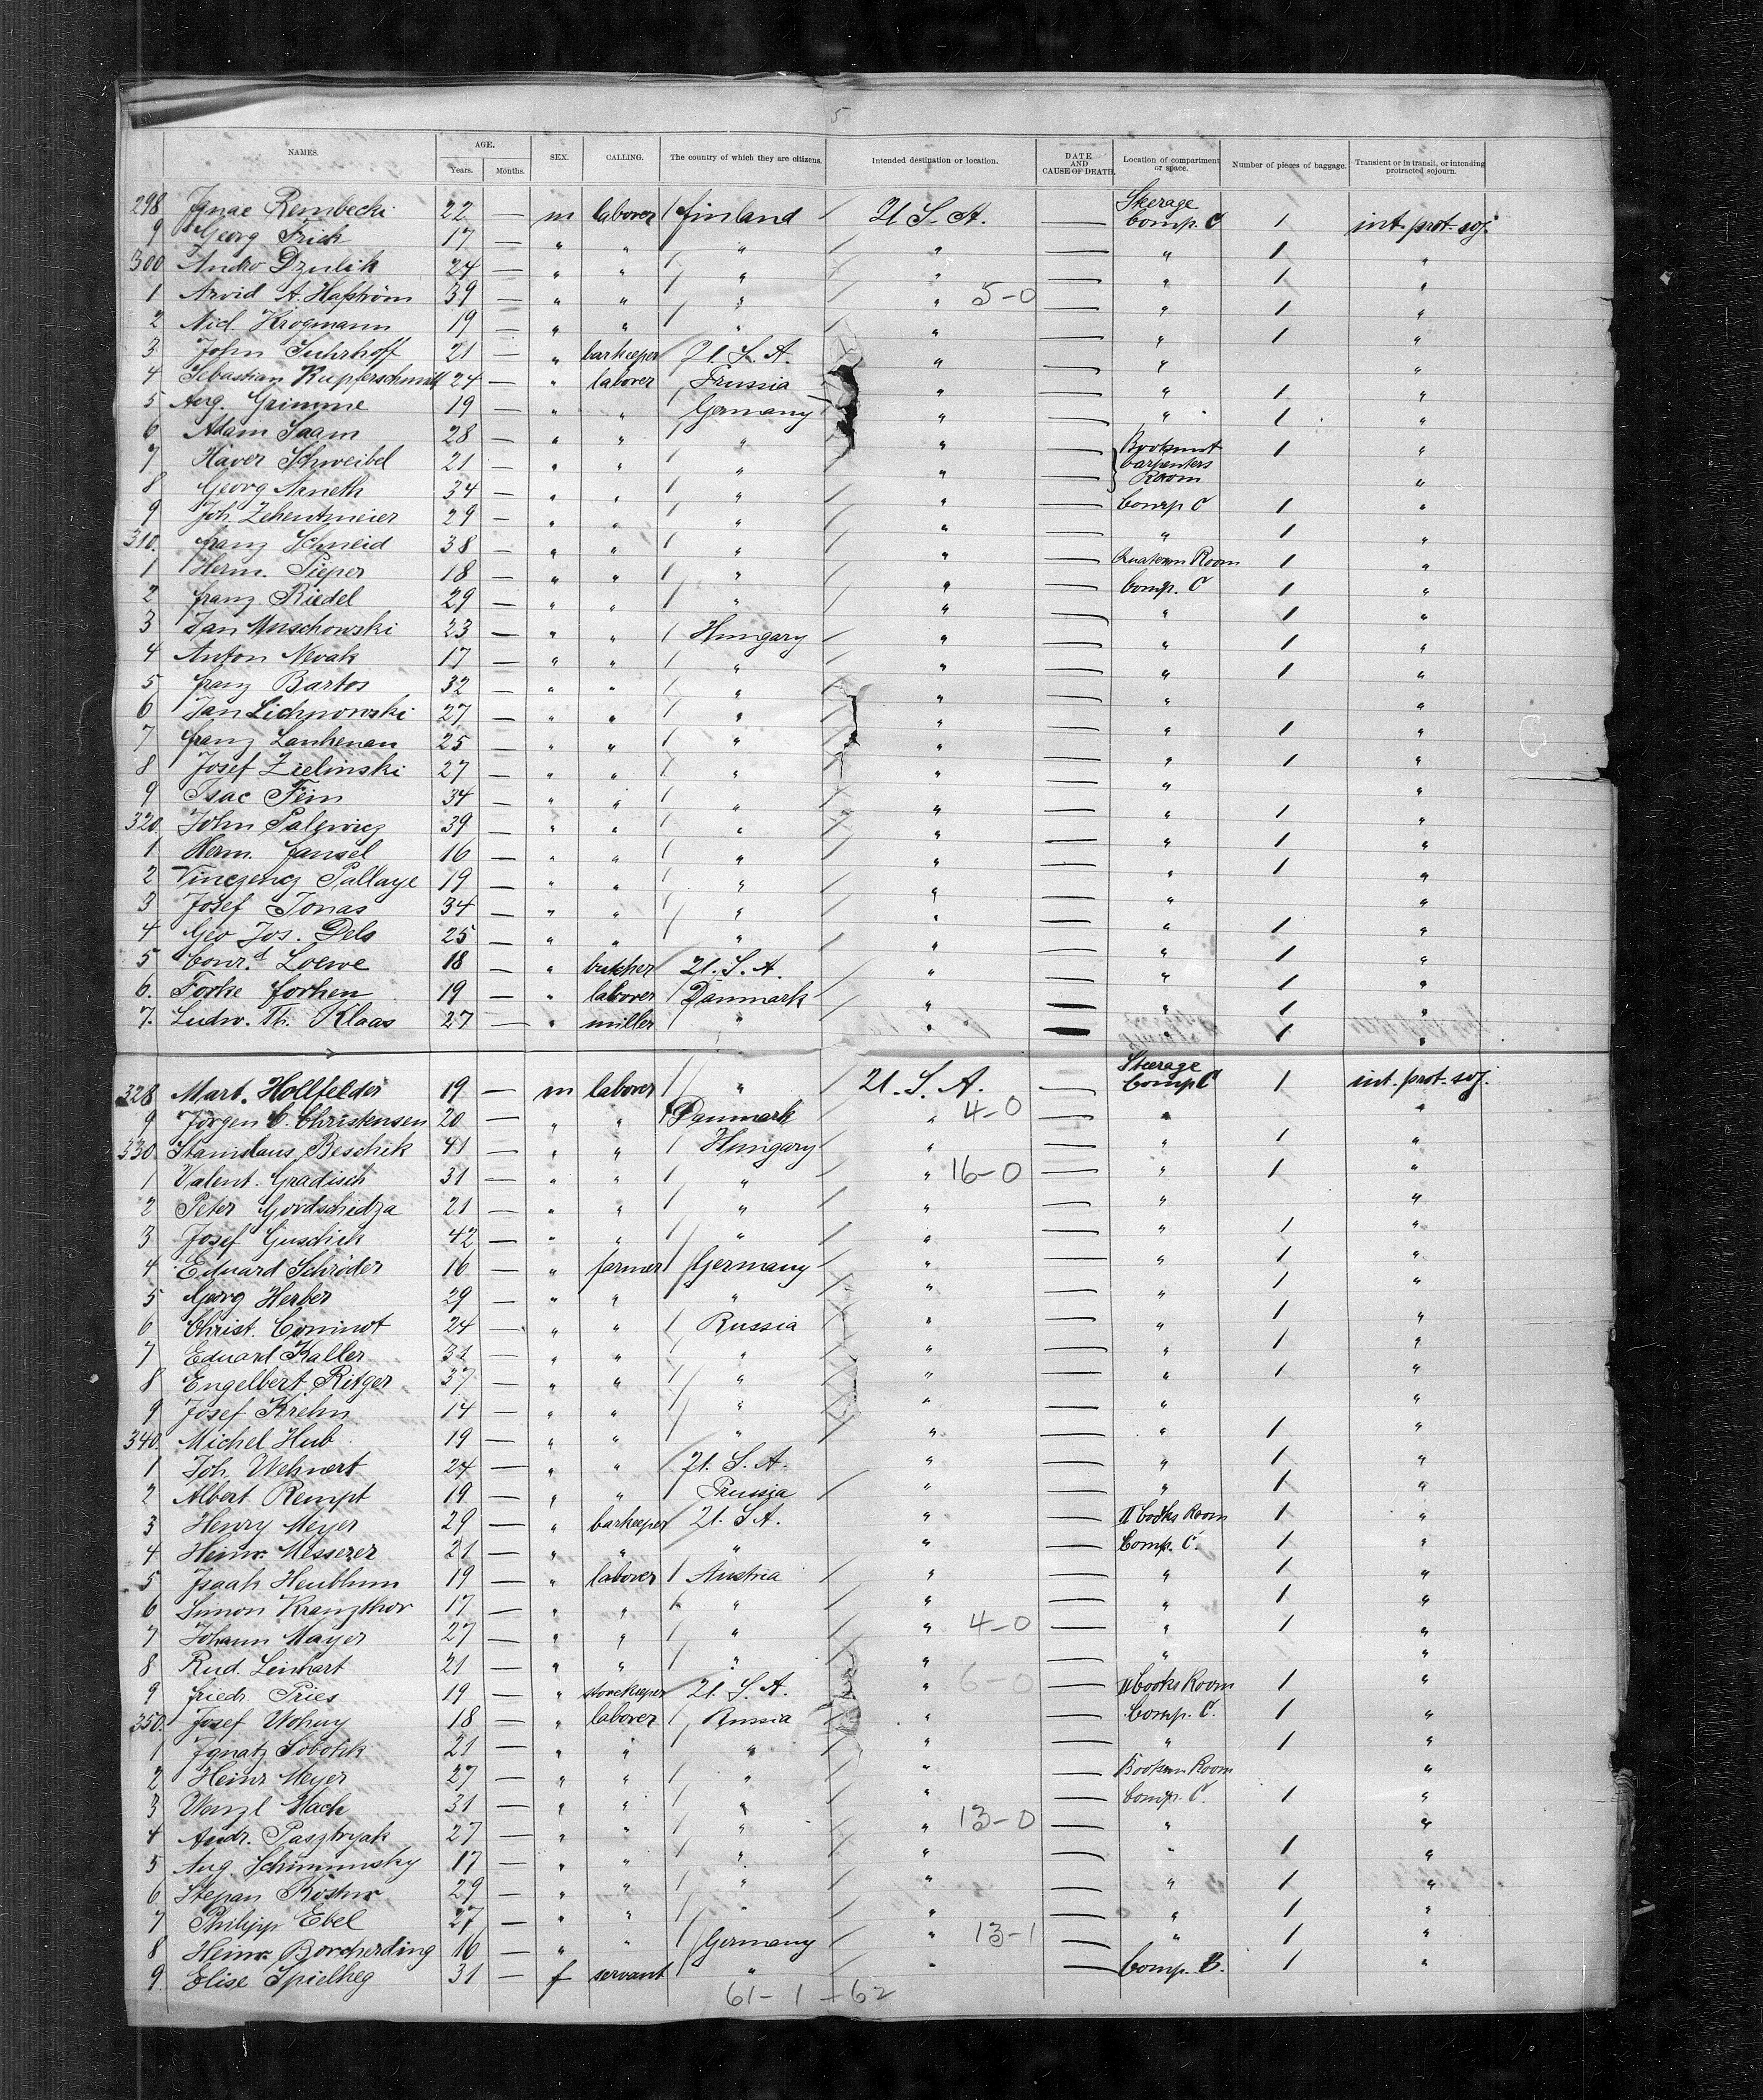 5
NAMES. AGE. Years. Months. SEX. CALLING. The country of which they are citizens. Intended destination or location. DATE AND CAUSE OF DEATH. Location of compartment or space. Number of pieces of baggage. Transient or in transit, or intending protracted sojourn.
298 Ignac Rembecki 22 — m laborer / Finland / U.S.A. — Steerage Comp. C 1 int. prot. soj.
9 Georg Frick 17 — " " / " / " — " 1 "
300 Andro Dzulik 24 — " " / " / " — " 1 "
1 Arvid A. Hafström 39 — " " / " / " 5-0 — " 1 "
2 Nicl. Krogmann 19 — " " / " / " — " 1 "
3 John Suhrhoff 21 — " barkeeper / U.S.A. " — " "
4 Sebastian Kupferschmidt 24 — " laborer / Prussia " — " 1 "
5 Aug. Grimme 19 — " " / Germany " — " 1 "
6 Adam Saam 28 — " " / " " — 1 "
7 Xaver Schweibel 21 — " " / " / " — Carpenters Room "
8 Georg Arneth 34 — " " / " / " — Comp C 1 "
9 Joh. Zehentmeier 29 — " " / " / " — " 1 "
310. Franz Schneid 38 — " " / " / " — Room 1 "
1 Herm. Pieper 18 — " " / " / " — Comp. C 1 "
2 Franz Riedel 29 — " " / " / " — " 1 "
3 Jan Muschowski 23 — " " / Hungary / " — " 1 "
4 Anton Novak 17 — " " / " / " — " 1 "
5 Franz Bartos 32 — " " / " / " — " "
6 Jan Lichnowski 27 — " " / " / " — " 1 "
7 Franz Lankenau 25 — " " / " / " — " 1 "
8 Josef Zielinski 27 — " " / " / " — " "
9 Isac Fein 34 — " " / " / " — " 1 "
320. John Palewicz 39 — " " / " / " — " 1 "
1 Herm. Jansel 16 — " " / " / " — " 1 "
2 Vinczencz Pallaye 19 — " " / " / " — " "
3 Josef Jonas 34 — " " / " / " — " 1 "
4 Geo Jos. Dels 25 — " " / " / " — " 1 "
5 Conrd Loewe 18 — " butcher / U.S.A. " — " 1 "
6. Forke 19 — " laborer / Danmark / " — " 1 "
7. Ludw. Th. Klaas 27 — " miller / " / " — " 1 "
328 Mart. Hollfelder 19 — m laborer / " / U.S.A. — Steerage Comp C 1 int. prot. soj.
9 Jörgen C. Christensen 20 — " " / Danmark / " 4-0 — " "
330 Stanislaus Beschek 41 — " " / Hungary / " — " 1 "
1 Valent. Gradisch 31 — " " / " / " 16-0 — " 1 "
2 Peter Gordschidza 21 — " " / " / " — " "
3 Josef Guschich 42 — " " / " / " — " 1 "
4 Eduard Schröder 16 — " farmer / Germany / " — " 1 "
5 Georg Herber 29 — " " / " / " — " 1 "
6 Christ. Cominot 24 — " " / Russia / " — " 1 "
7 Eduard Kaller 32 — " " / " / " — " 1 "
8 Engelbert Ritger 37 — " " / " / " — " 1 "
9 Josef Krehn 14 — " " / " / " — " "
340. Michel Hub 19 — " " / " / " — " 1 "
1 Joh. Wehnert 24 — " " / U.S.A. " — " 1 "
2 Albert Rempt 19 — " " / Prussia / " — " 1 "
3 Henry Meyer 29 — " barkeeper / U.S.A. " — II Cooks Room 1 "
4 Heinr. Messerer 21 — " " " " — Comp. C. 1 "
5 Isaak Heublum 19 — " laborer / Austria / " — " 1 "
6 Simon Kranzthor 17 — " " / " / " — " 1 "
7 Johann Mayer 27 — " " / " / " 4-0 — " 1 "
8 Rud. Linhart 21 — " " / " / " — " "
9 Friedr. Pries 19 — " storekeeper / U.S.A. " 6-0 — II Cooks Room 1 "
350. Josef 18 — " laborer / Russia / " — Comp. C. 1 "
1 Ignatz Sobotik 21 — " " / " / " — " 1 "
2 Heinr Meyer 27 — " " / " / " — Room "
3 Wenzl Mach 31 — " " / " / " — Comp. C. 1 "
4 Andr. Pasztryak 27 — " " / " / " 13-0 — " "
5 Aug. Schimmnsky 17 — " " / " / " — " 1 "
6 Stepan 29 — " " / " / " — " 1 "
7 Philipp Ebel 27 — " " / " / " — " 1 "
8 Heinr. Borcherding 16 — " " / Germany / " 13-1 — " 1 "
9. Elise Spielheg 31 — f servant / " / " — Comp. B. 1 "
61-1 + 62